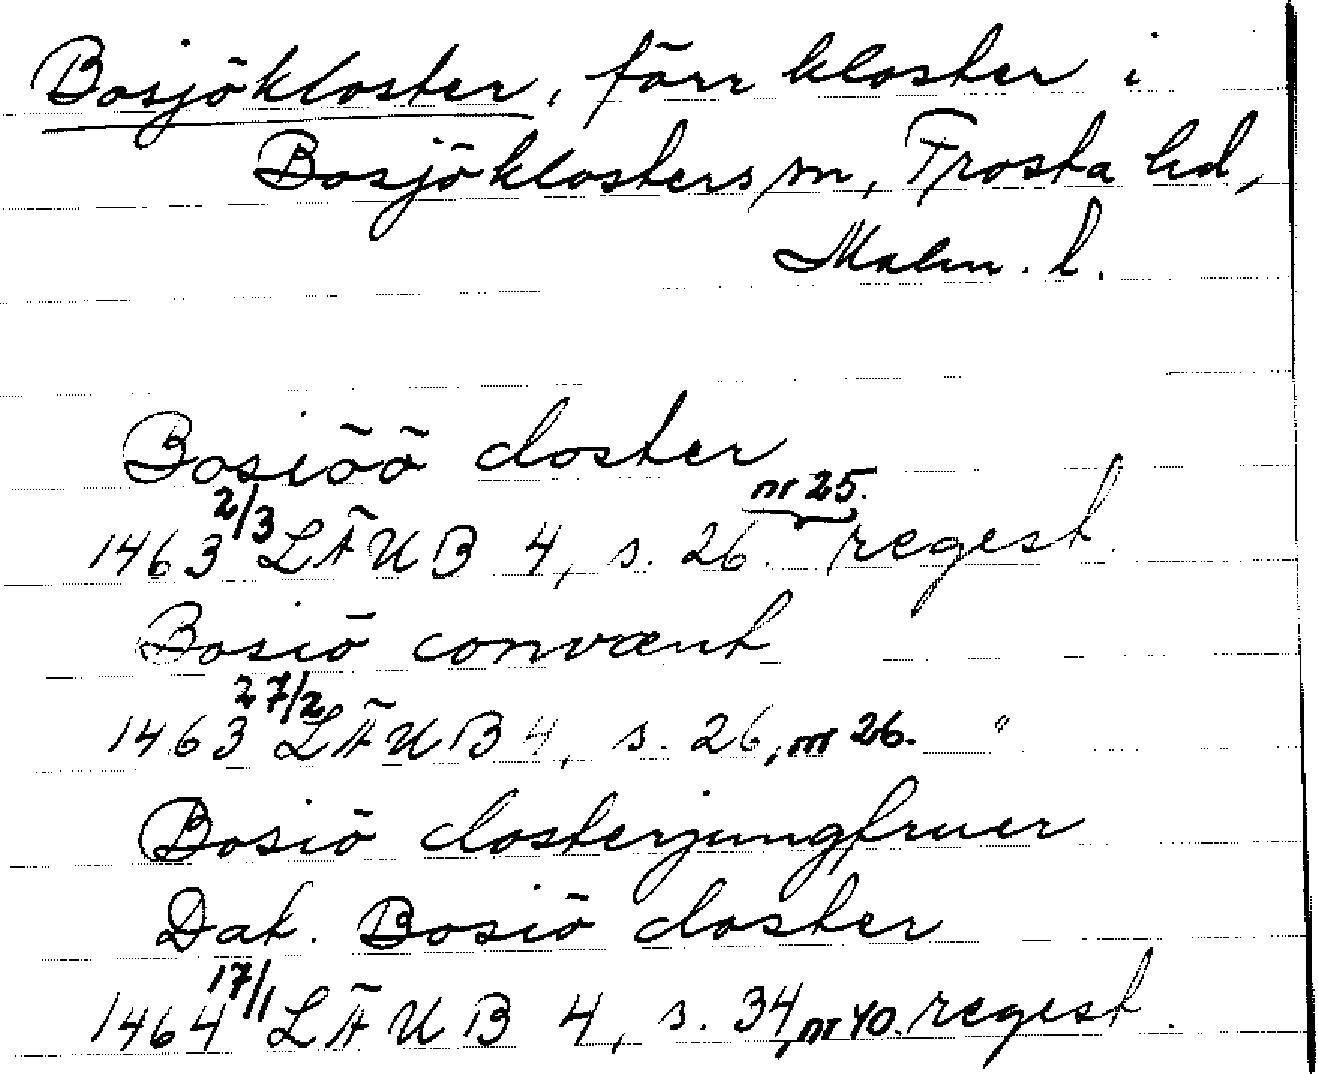 Bosjökloster, förr kloster i
Bosjöklosters sn, Frosta hd,
Malm. l.
Bosiöö closter
1463 2/3 LÄUB 4, s. 26. nr 25. regest.
Bosiö convænt
1463 27/2 LÄUB 4, s. 26, nr 26. "
Bosiö closterjungfruer
Dat. Bosiö closter
1464 17/1 LÄUB 4, s. 34, nr 40. regest.